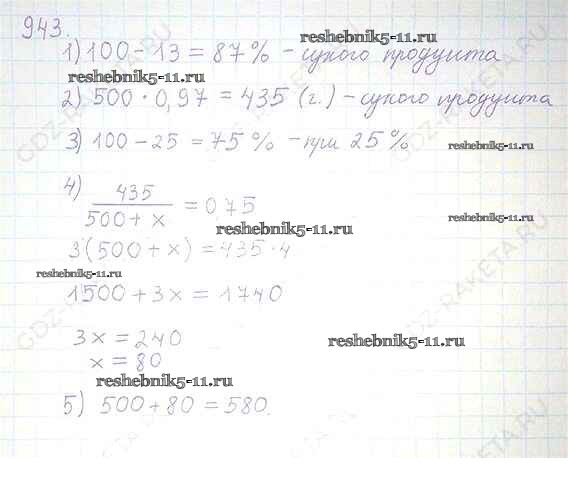 943.
reshebnik5-11.ru
1) 100 - 13 = 87% - сухого продукта
reshebnik5-11.ru
2) 500 · 0,97 = 435 (г.) - сухого продукта
3) 100 - 25 = 75% - при 25%
reshebnik5-11.ru
4) 435/(500 + x) = 0 75
reshebnik5-11.ru
reshebnik5-11.ru
3(500 + x) = 435 · 4
reshebnik5-11.ru
1500 + 3x = 1740
3x = 240
reshebnik5-11.ru
x = 80
reshebnik5-11.ru
5) 500 + 80 = 580.
GDZ-RAKETA.RU
GDZ-RAKETA.RU
GDZ-RAKETA.RU
GDZ-RAKETA.RU